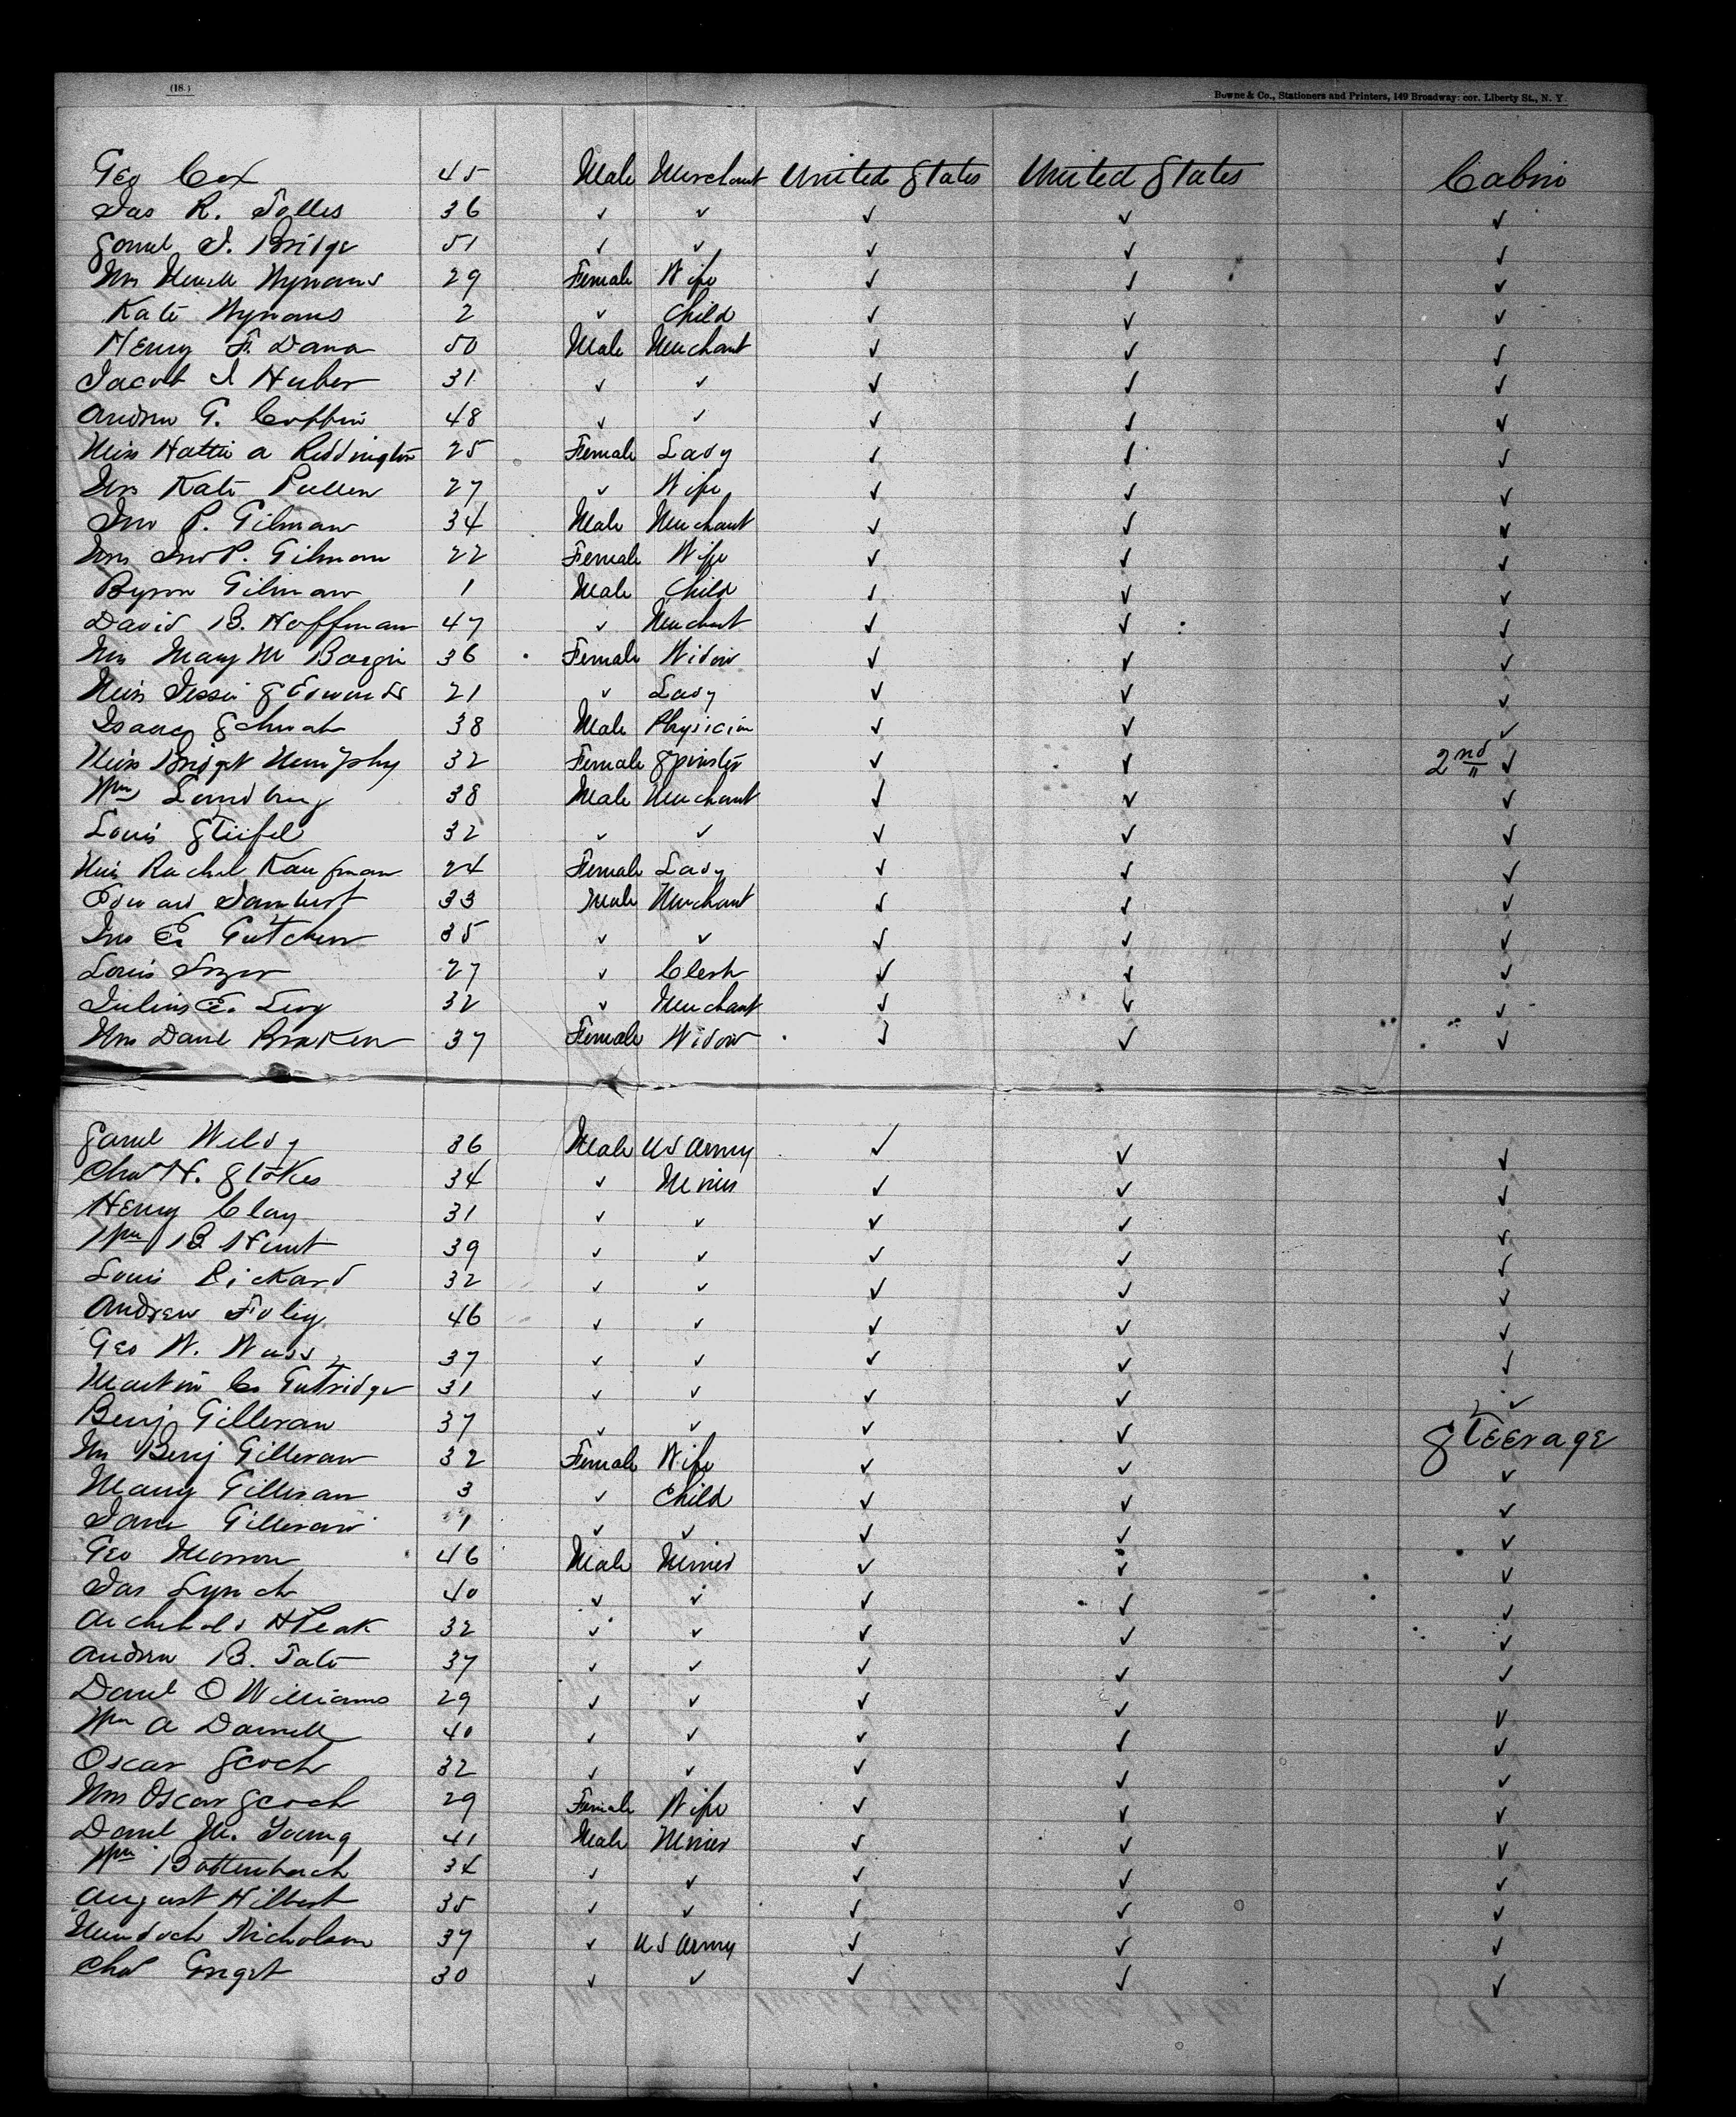 (18.)
Bowne & Co., Stationers and Printers, 149 Broadway: cor. Liberty St., N. Y.
Geo Cox 45 Male Merchant United States United States Cabin
Jas R. Tolles 36 ✓ ✓ ✓ ✓ ✓
Saml J. Bridge 51 ✓ ✓ ✓ ✓ ✓
Mrs Wynans 29 Female Wife ✓ ✓ ✓
Kate Wynans 2 ✓ Child ✓ ✓ ✓
Henry F. Dana 50 Male Merchant ✓ ✓ ✓
Jacob J Huber 31 ✓ ✓ ✓ ✓ ✓
Andrew G. Coffin 48 ✓ ✓ ✓ ✓ ✓
Miss Hattie A Reddington 25 Female Lady ✓ ✓ ✓
Mrs Kate Pullen 27 ✓ Wife ✓ ✓ ✓
Jno P. Gilman 34 Male Merchant ✓ ✓ ✓
Mrs Jno P. Gilman 22 Female Wife ✓ ✓ ✓
Byron Gilman 1 Male Child ✓ ✓ ✓
David B. Hoffman 47 ✓ Merchant ✓ ✓ ✓
Mrs Mary M 36 Female Widow ✓ ✓ ✓
Miss Jessie S Edwards 21 ✓ Lady ✓ ✓ ✓
Isaac Schwab 38 Male Physician ✓ ✓ ✓
Miss Bridget Murphy 32 Female Spinster ✓ ✓ 2nd " ✓
Wm Landsburg 38 Male Merchant ✓ ✓ ✓
Louis Stiefel 32 ✓ ✓ ✓ ✓ ✓
Miss Rachel Kaufman 24 Female Lady ✓ ✓ ✓
Edward Lambert 33 Male Merchant ✓ ✓ ✓
Jno E. Gutchen 35 ✓ ✓ ✓ ✓ ✓
Louis 27 ✓ Clerk ✓ ✓ ✓
Julius E. Levy 32 ✓ Merchant ✓ ✓ ✓
Mrs Danl Braken 37 Female Widow ✓ ✓ ✓
Saml Weldy 36 Male US Army ✓ ✓ ✓
Chas H. Stokes 34 ✓ Miner ✓ ✓ ✓
Henry Clay 31 ✓ ✓ ✓ ✓ ✓
Wm B Hunt 39 ✓ ✓ ✓ ✓ ✓
Louis Rickard 32 ✓ ✓ ✓ ✓ ✓
Andrew Foley 46 ✓ ✓ ✓ ✓ ✓
Geo W. Wass 37 ✓ ✓ ✓ ✓ ✓
Martin C. Gutridge 31 ✓ ✓ ✓ ✓ ✓
Benj Gilleran 37 ✓ ✓ ✓ ✓ Steerage
Mrs Benj Gilleran 32 Female Wife ✓ ✓ ✓
Mary Gilleran 3 ✓ Child ✓ ✓ ✓
Jane Gilleran 1 ✓ ✓ ✓ ✓ ✓
Geo Morrow 46 Male Miner ✓ ✓ ✓
Jas Lynch 40 ✓ ✓ ✓ ✓ ✓
Archibald H Peak 32 ✓ ✓ ✓ ✓ ✓
Andrew B. Tate 37 ✓ ✓ ✓ ✓ ✓
Danl O Williams 29 ✓ ✓ ✓ ✓ ✓
Wm A Darnell 40 ✓ ✓ ✓ ✓ ✓
Oscar Scoch 32 ✓ ✓ ✓ ✓ ✓
Mrs Oscar Scoch 29 Female Wife ✓ ✓ ✓
Danl M. Young 41 Male Miner ✓ ✓ ✓
Wm Bottenbach 34 ✓ ✓ ✓ ✓ ✓
August Hilbert 35 ✓ ✓ ✓ ✓ ✓
Murdoch Nicholson 37 ✓ US Army ✓ ✓ ✓
Chas 30 ✓ ✓ ✓ ✓ ✓